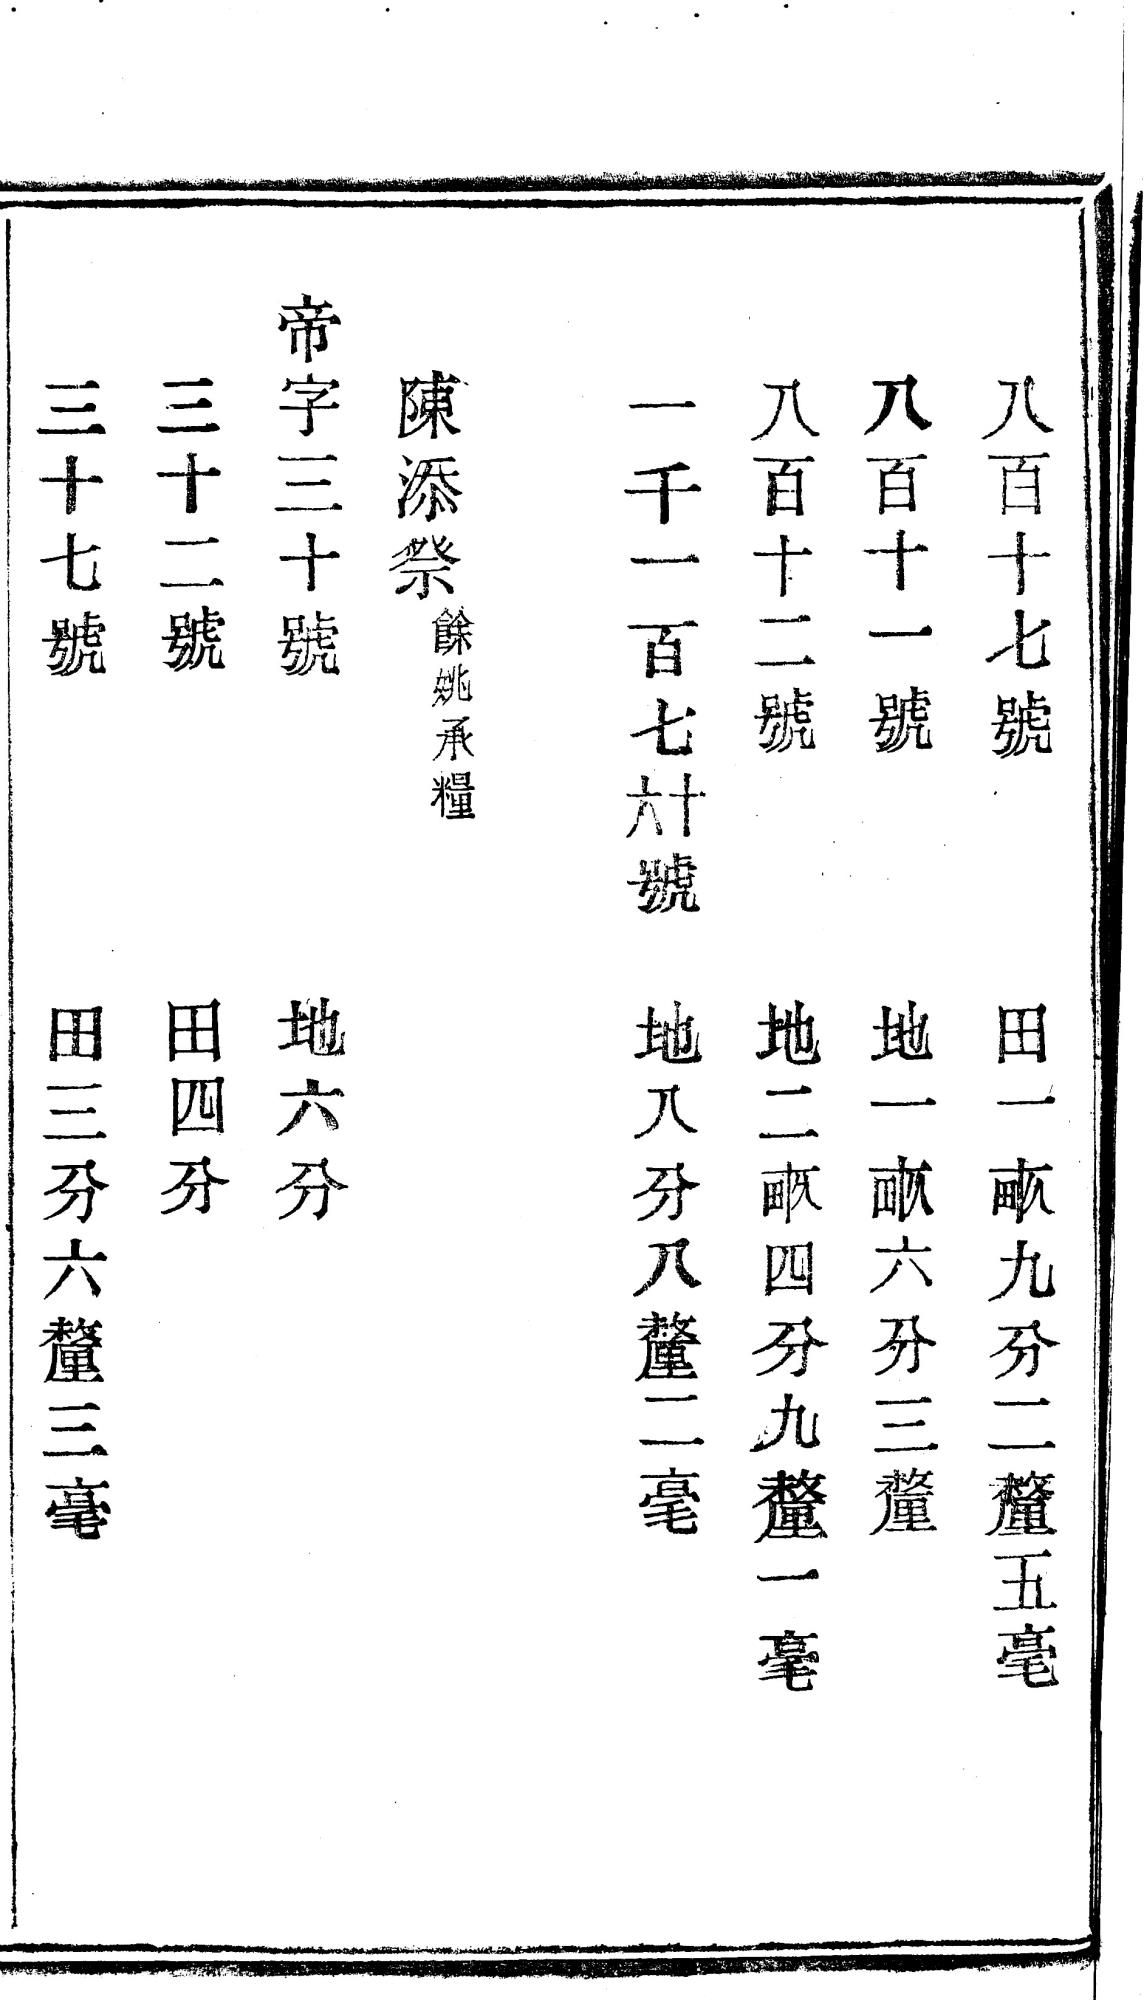 八百十七號　田一畞九分二釐五毫
八百十一號　地一畞六分三釐
八百十二號　地二畞四分九釐一毫
一千一百七十六號　地八分八釐二毫
陳添祭　餘姚承糧
帝字三十號　地六分
三十二號　田四分
三十七號　田三分六釐三毫